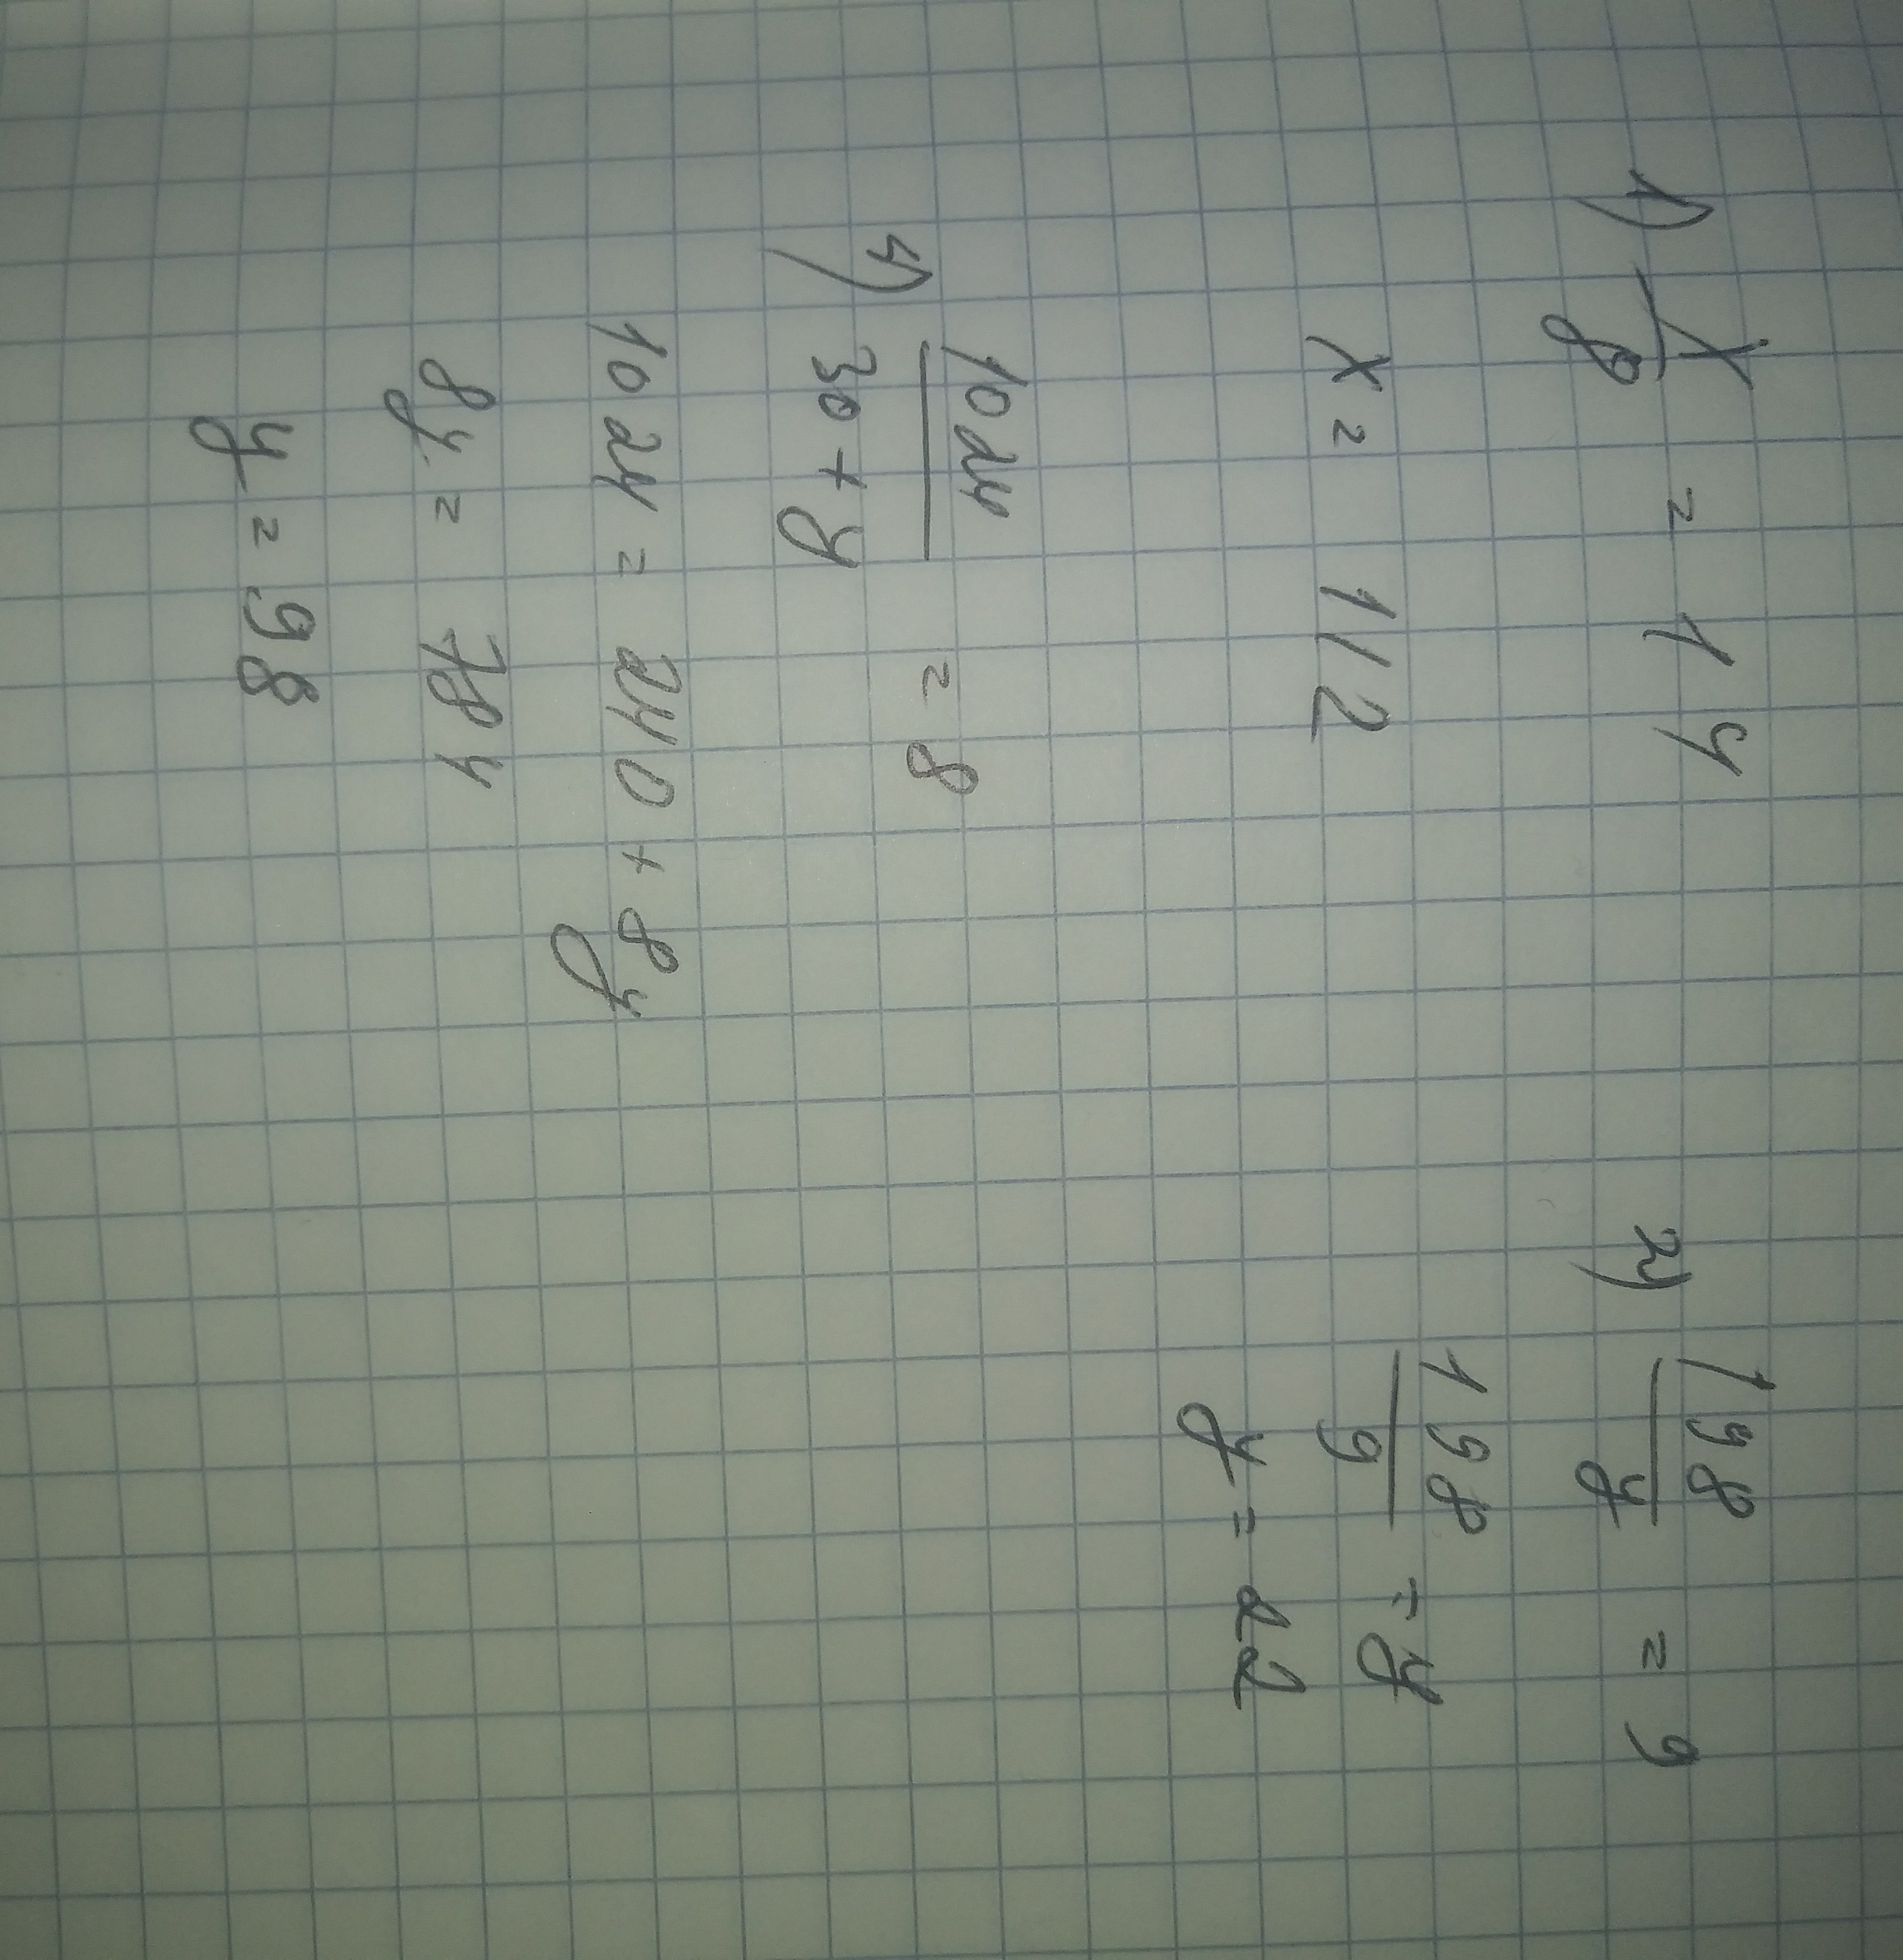 1) x/8 = 14
x = 112
2) 198/y = 9
198/9 = y
y = 22
4) 1024/30 + y = 8
1024 = 240 + 8y
8y = 784
y = 98